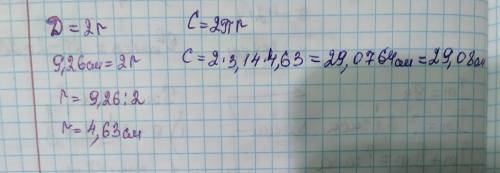 D = 2r
9,26см = 2r
r = 9,26 : 2
r = 4,63 см
C = 2πr
C = 2·3,14·4,63 = 29,0764см = 29,08см